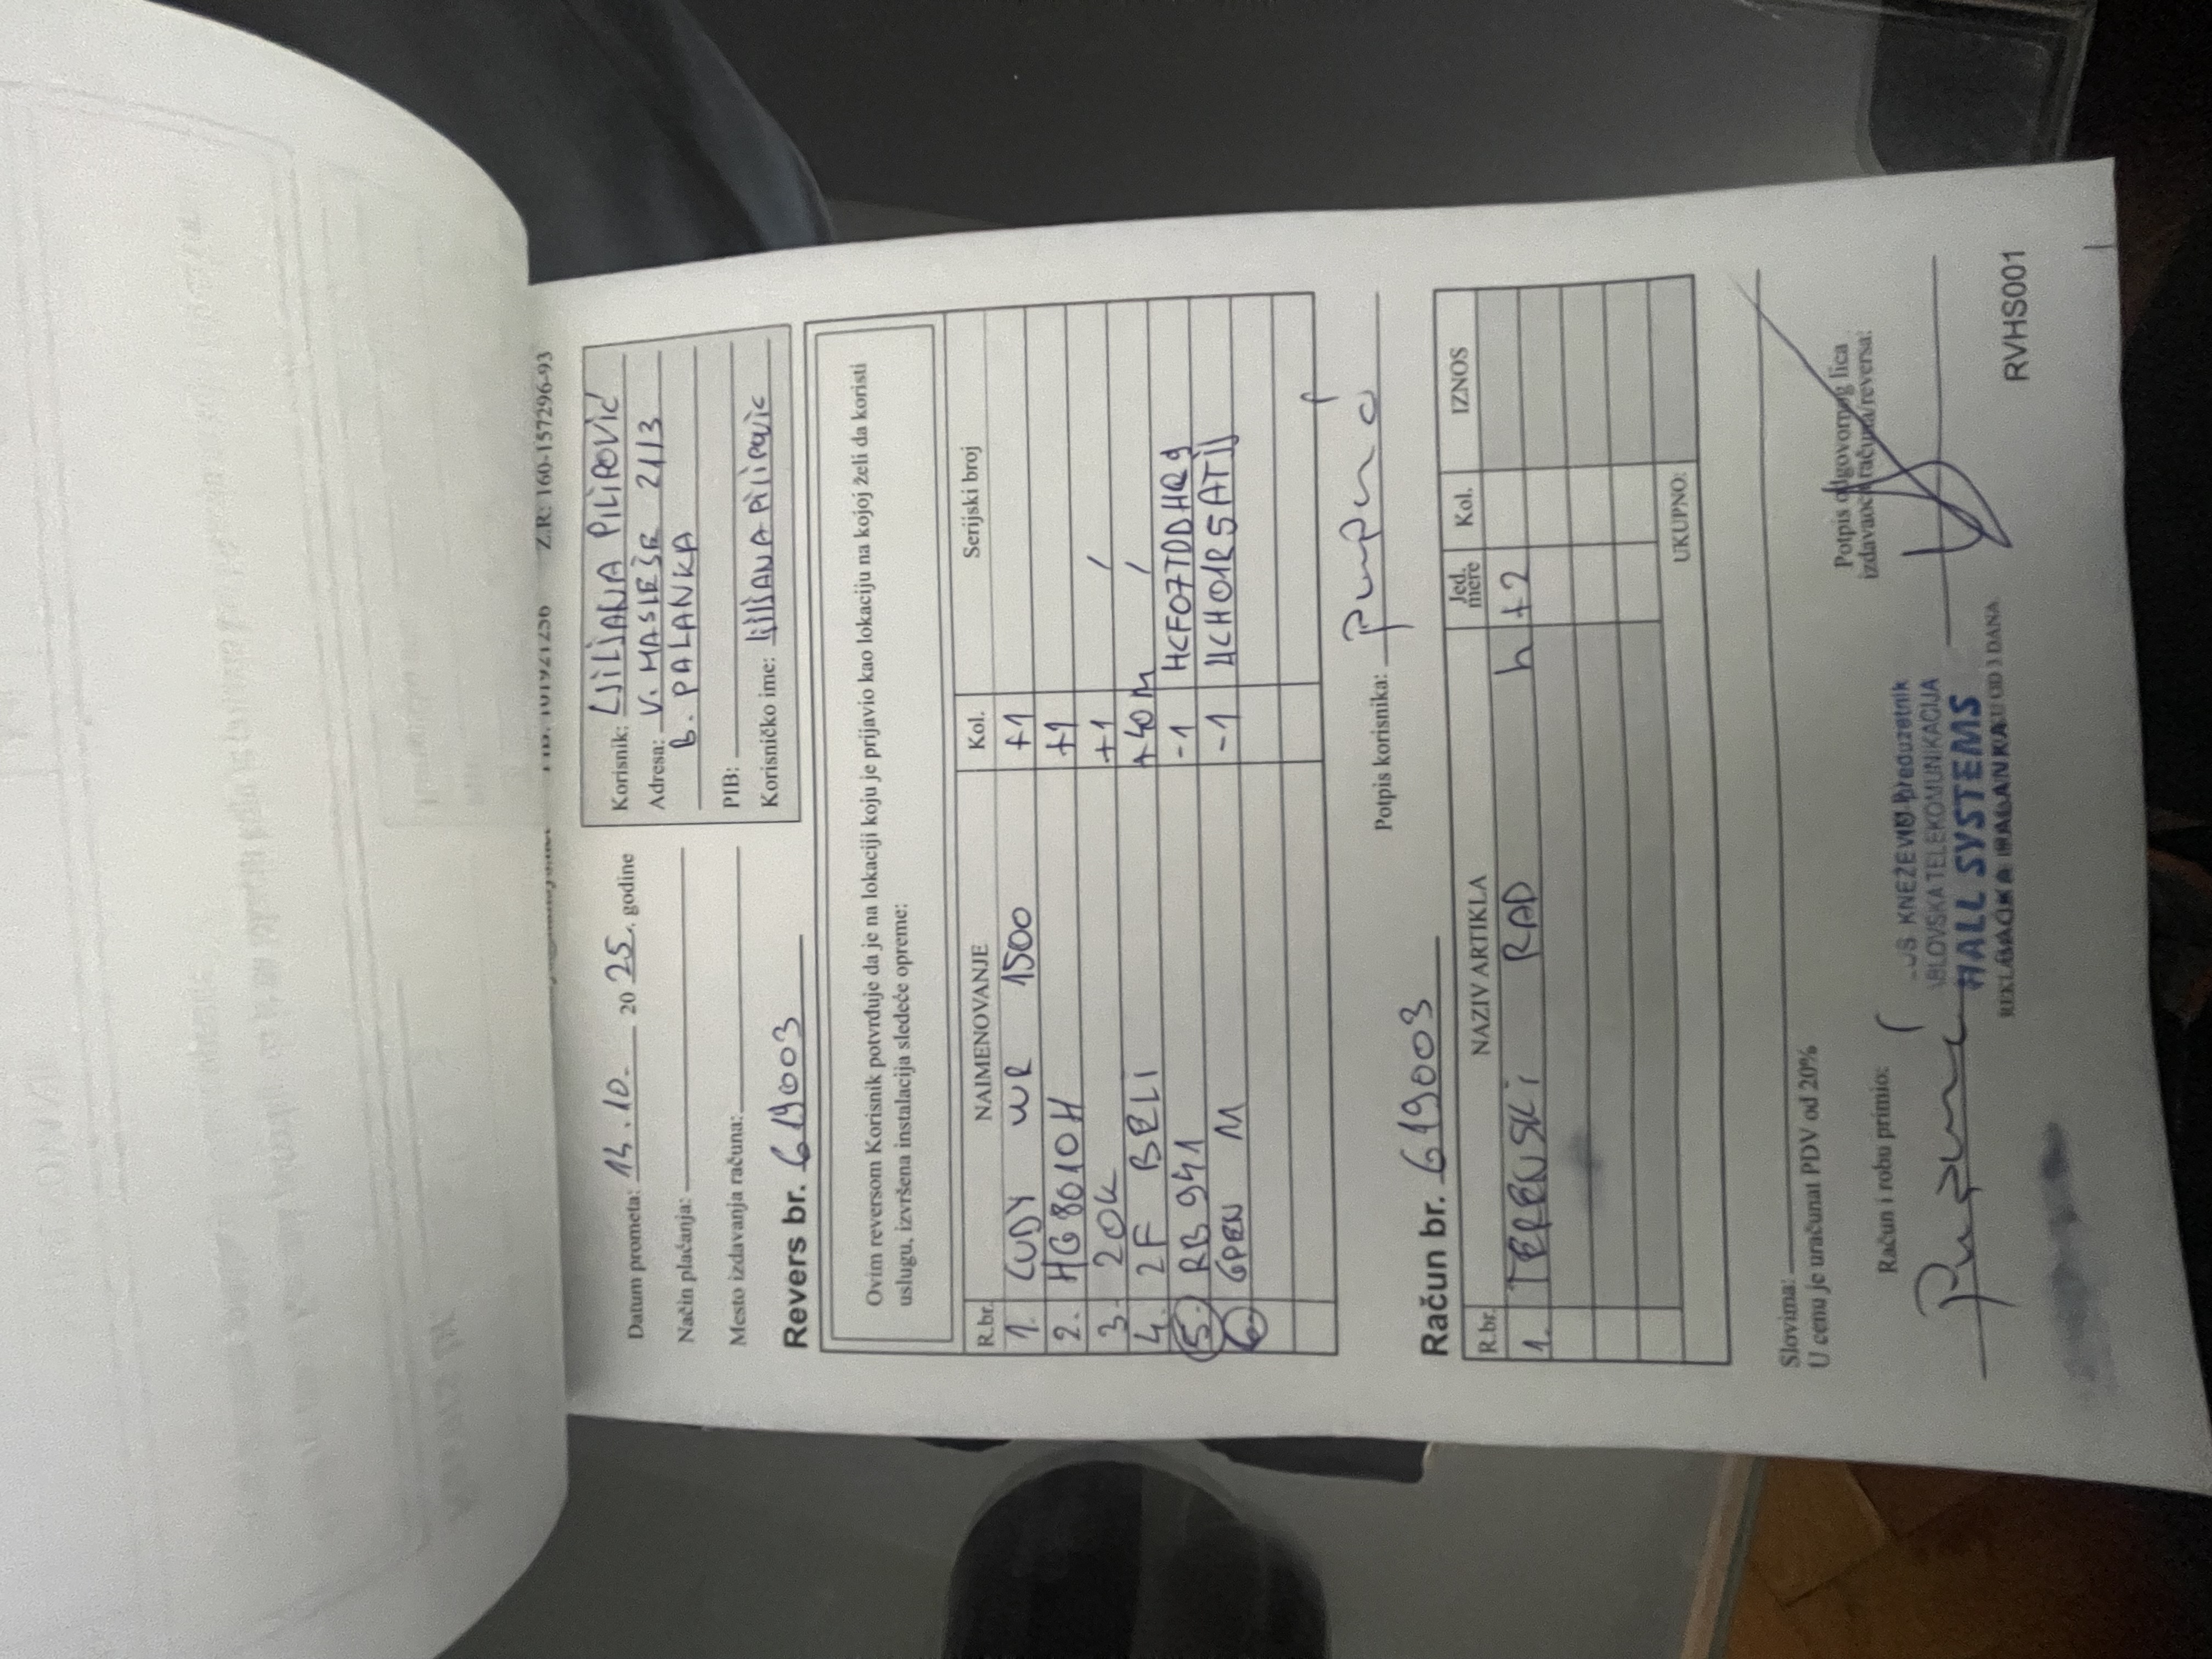 Z.R: 160-157296-93
Datum prometa: 14.10. 2025. godine
Način plaćanja:
Mesto izdavanja računa:
Korisnik: LJILJANA PILIPOVIĆ
Adresa: V. MASLEŠE 21/3
B. PALANKA
PIB:
Korisničko ime: ljiljANAPilipovic
Revers br. 619003
Ovim reversom Korisnik potvrđuje da je na lokaciji koju je prijavio kao lokaciju na kojoj želi da koristi
uslugu, izvršena instalacija sledeće opreme:
R.br. NAIMENOVANJE Kol. Serijski broj
1. CUDY WR 1500 +1
2. HG8010H +1
3. 20K +1 /
4. 2F BELI +40m /
5. RB941 -1 HCF07TDDHQ9
6. GPEN 11 -1 HCH01R5ATJJ
Potpis korisnika:
Račun br. 619003
R.br. NAZIV ARTIKLA Jed. mere Kol. IZNOS
1. TERENSKI RAD h +2
UKUPNO:
Slovima:
U cenu je uračunat PDV od 20%
Račun i robu primio:
Potpis odgovornog lica
izdavaoca računa/reversa:
HALL SYSTEMS
RVHS001